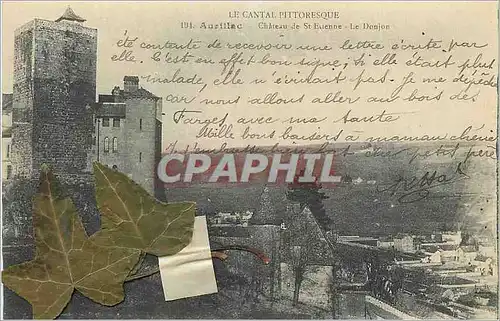 LE CANTAL PITTORESQUE
191. Aurillac Château de St Etienne - Le Donjon
été contente de recevoir une lettre écrite par
elle. C'est en effet bon signe; si elle était plus
malade, elle n'écrivait pas. Je me dépêche
car nous allons aller au bois des
Farges avec ma tante
Mille bons baisers à maman chérie
petit père
CPAPHIL
.COM